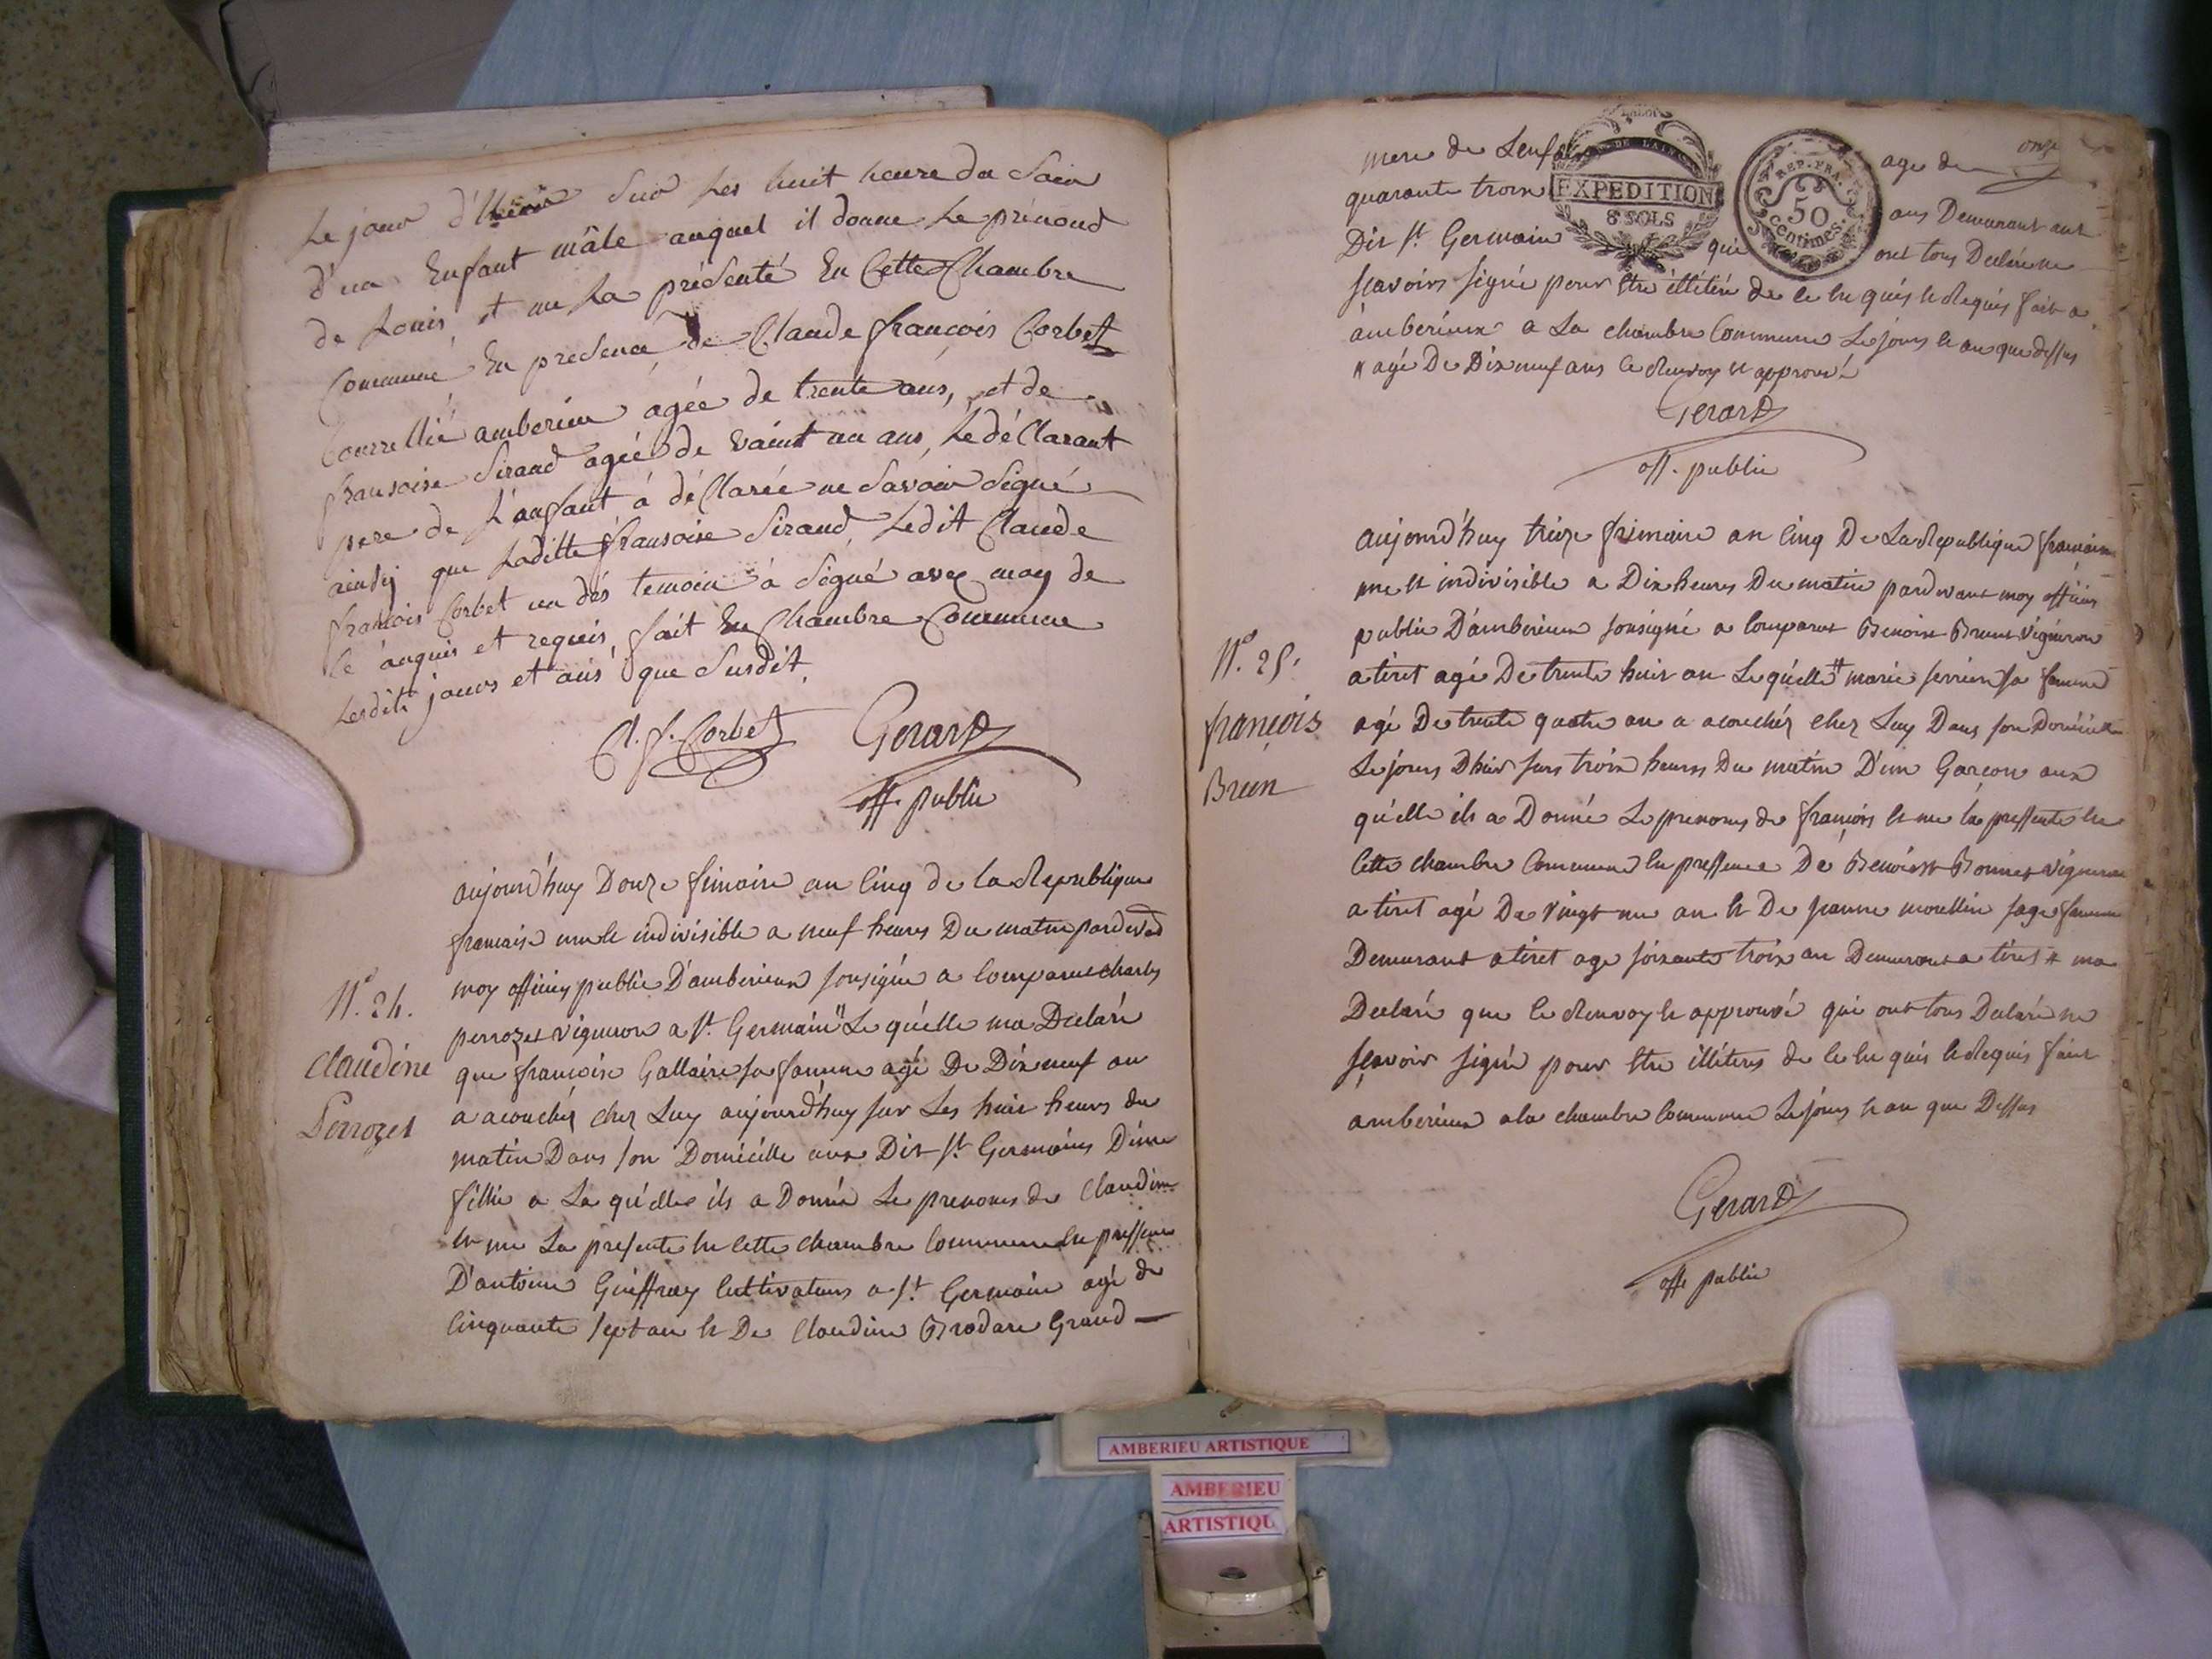 Le jour d'hier Sur les huit heure du Soir
d'un Enfant mâle auquel il donne le prénond
de Louis, et me La présenté En Cette Chambre
Commune En presence de Claude françois Corbet
amberieu agée de trente ans, et de
fransoise Sirand agée de vaint un ans, le déClarant
pere de L'anfant, à déClarée ne Savoir Signé
ainsy que Laditte fransoise Sirand, Ledit Claude
francois Corbet un dés temoin à Signé avec moy de
Ce anquis et requis, fait En Chambre Commune
Lesdits jours et ans que Susdit.
Cl. f. Corbet Gerard
off. public
aujourd'huy Douze frimaire an Cinq de la Republique
francaise une et indivisible a neuf heures Du matin pardevand
moy officier public D'amberieux sousigné a Comparut charles
perrozet vigneron a St. Germain " Le quélle ma Declaré
que francoise Gallaire sa famme agé De Dix neuf an
a acouchéz chez Luy aujourd'huy sur Les huit heures du
matin Dans son Domicille aux Dit St Germains Dune
fillie a La quélle ils a Donné Le prenoms de Claudine
et me La presente en cette chambre Commune en pressence
D'antoine Guiffray Cultivateurs a St. Germain agé de
Cinquante sept an et De Claudine Brodare Grand —
N.º 24.
Claudine
Perrozet
mere de Lenfan age de onze
quarante trois ans Demurant aut
Dit St Germain qui ont tous Declaré ne
scavoirs signé pour etre illétéré de ce en quis et Requis fait a
amberieux a La chambre Commune Le jours et an que dessus
" agé De Dix neuf ans Ce Renvoy et approuvé
Gerard
off. public
aujourd'huy treize frimaire an Cinq De La Republique francaise
une et indivisible a Dix heures Du matin pardevant moy officier
public D'amberieux sousigné a Comparut Benoist Brunt vigneron
a tiret agé De trente huit an Le quélle # marie servier sa famme
agé De trente quatre an a acouchéz chez Luy Dans son Domicille
Le jours Dhier surs trois heures Du matin D'un Garcon aux
quélle ils a Donné Le prenoms de francois et me la pressente en
Cette chambre Commune En pressence De Benoist Bonnet vigneron
a tiret agé De vingt un an et De jeanne morellin sage famme
Demurant a tiret age soixante trois an Demurant a tiret # ma
Declaré que ce Renvoy et approuvé qui ont tous Declaré ne
sçavoir signé pour etre illiteres de ce en quis et Requis fait
amberieux a la chambre Commune Le jours et an que Dessus
Gerard
off. public
N.º 25.
francois
Brun
EXPEDITION
8 SOLS
REP. FRA.
50
Centimes.
AMBERIEU ARTISTIQUE
AMBERIEU
ARTISTIQU